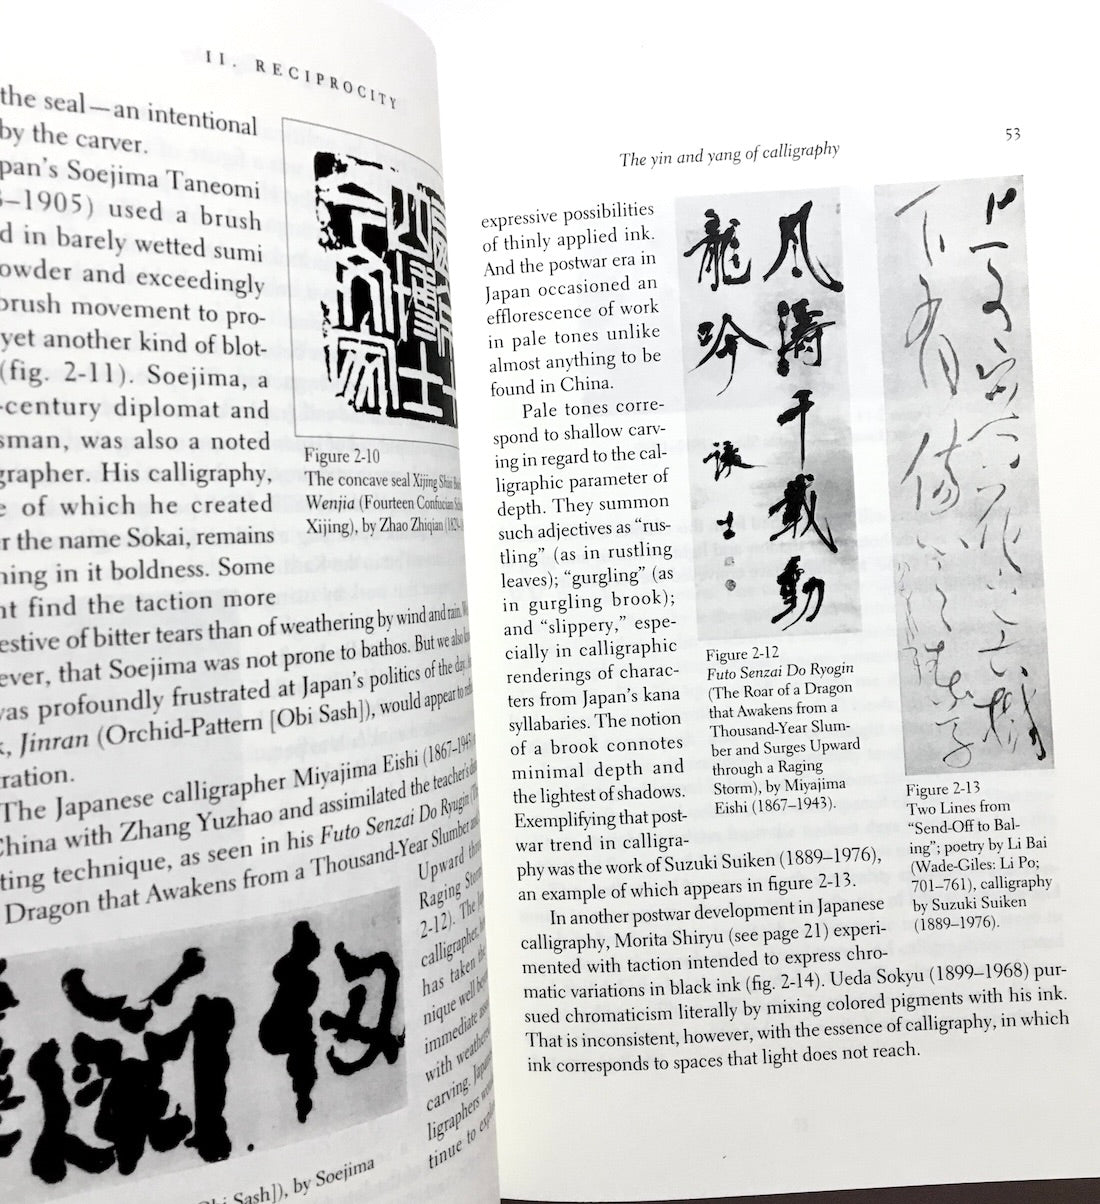 II. RECIPROCITY
the seal—an intentional
by the carver.
pan's Soejima Taneomi
–1905) used a brush
d in barely wetted sumi
owder and exceedingly
brush movement to pro-
yet another kind of blot-
(fig. 2-11). Soejima, a
-century diplomat and
sman, was also a noted
grapher. His calligraphy,
e of which he created
r the name Sokai, remains
ning in it boldness. Some
ht find the taction more
estive of bitter tears than of weathering by wind and rain.
ever, that Soejima was not prone to bathos. But we also
was profoundly frustrated at Japan's politics of the day.
Jinran (Orchid-Pattern [Obi Sash]), would appear to
ration.
The Japanese calligrapher Miyajima Eishi (1867–1943)
China with Zhang Yuzhao and assimilated the teacher's
ting technique, as seen in his Futo Senzai Do Ryugin
Dragon that Awakens from a Thousand-Year Slumber
Upward
Raging
2-12). The
calligrapher,
has taken
nique well
immediate
with
carving.
ligraphers
tinue to
Figure 2-10
The concave seal Xijing
Wenjia (Fourteen Confucian
Xijing), by Zhao Zhiqian
Obi Sash]), by Soejima
The yin and yang of calligraphy
53
expressive possibilities
of thinly applied ink.
And the postwar era in
Japan occasioned an
efflorescence of work
in pale tones unlike
almost anything to be
found in China.
Pale tones corre-
spond to shallow carv-
ing in regard to the cal-
ligraphic parameter of
depth. They summon
such adjectives as “rus-
tling” (as in rustling
leaves); “gurgling” (as
in gurgling brook);
and “slippery,” espe-
cially in calligraphic
renderings of charac-
ters from Japan's kana
syllabaries. The notion
of a brook connotes
minimal depth and
the lightest of shadows.
Exemplifying that post-
war trend in calligra-
phy was the work of Suzuki Suiken (1889–1976),
an example of which appears in figure 2-13.
In another postwar development in Japanese
calligraphy, Morita Shiryu (see page 21) experi-
mented with taction intended to express chro-
matic variations in black ink (fig. 2-14). Ueda Sokyu (1899–1968) pur-
sued chromaticism literally by mixing colored pigments with his ink.
That is inconsistent, however, with the essence of calligraphy, in which
ink corresponds to spaces that light does not reach.
風濤千載動
龍吟
Figure 2-12
Futo Senzai Do Ryogin
(The Roar of a Dragon
that Awakens from a
Thousand-Year Slum-
ber and Surges Upward
through a Raging
Storm), by Miyajima
Eishi (1867–1943).
Figure 2-13
Two Lines from
“Send-Off to Bal-
ing”; poetry by Li Bai
(Wade-Giles: Li Po;
701–761), calligraphy
by Suzuki Suiken
(1889–1976).